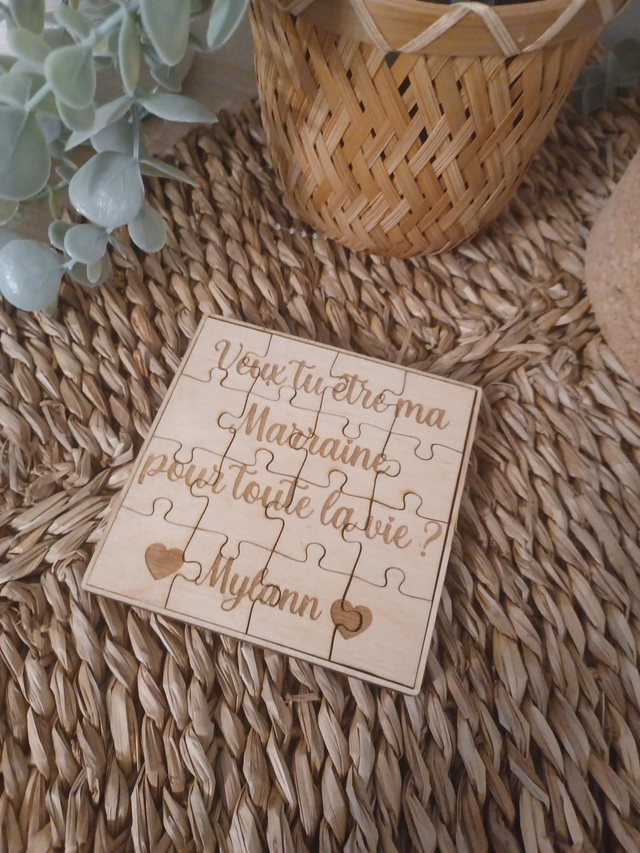 Veux tu être ma
Marraine
pour toute la vie ?
Mylann